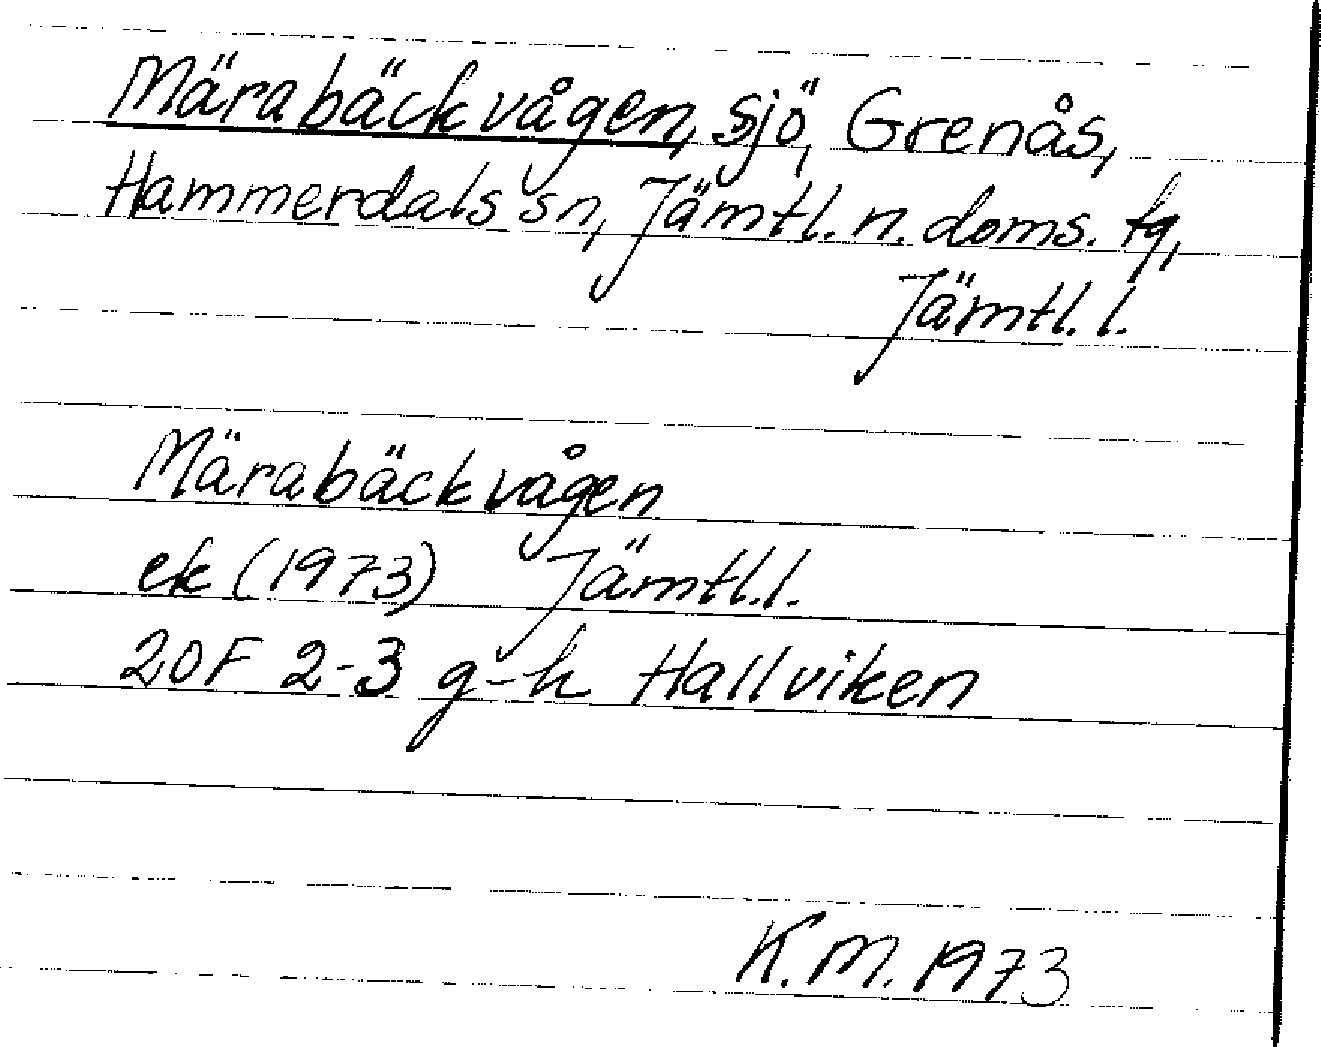 Märabäckvågen, sjö, Grenås,
Hammerdals sn, Jämtl. n. doms. tg,
Jämtl. l.
Märabäckvågen
ek (1973) Jämtl. l.
20F 2-3 g-h Hallviken
K.M. 1973